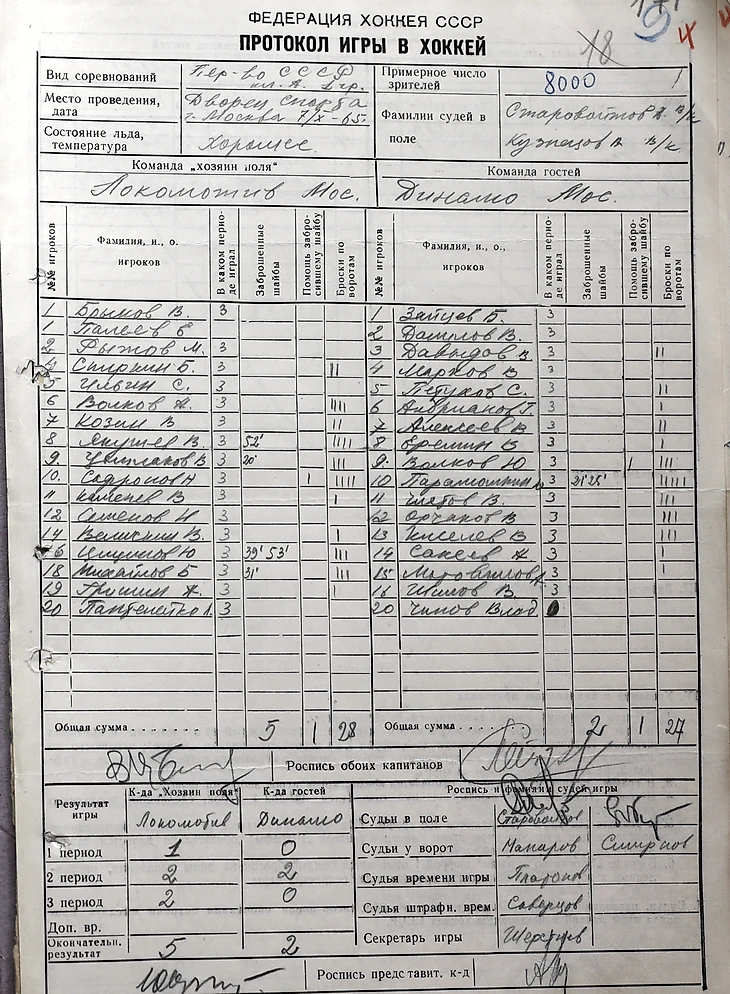 ФЕДЕРАЦИЯ ХОККЕЯ СССР
ПРОТОКОЛ ИГРЫ В ХОККЕЙ
18
4
Вид соревнований Пер-во СССР кл. А. 1 гр.
Примерное число зрителей 8000
Место проведения, дата Дворец спорта г. Москва 7/X-65
Фамилии судей в поле Старовойтов А. в/к
Кузнецов в/к
Состояние льда, температура Хорошее.
Команда „хозяин поля" Команда гостей
Локомотив Мос. Динамо Мос.
№№ игроков Фамилия, и., о. игроков В каком периоде играл Заброшенные шайбы Помощь забросившему шайбу Броски по воротам №№ игроков Фамилия, и., о., игроков В каком периоде играл Заброшенные шайбы Помощь забросившему шайбу Броски по воротам
1 Брыков В. 3 1 Зайцев Б. 3
1 2 Данилов В. 3
2 Рыжов М. 3 3 Давыдов В 3 II
4 Спиркин Б. 3 II 4 Марков В 3
5 Ильин С. 3 5 Петухов С. 3 II
6 Волков 3 IIII 6 3 I
7 Козин В 3 II 7 Алексеев В 3 I
8 Якушев В. 3 52' IIII 8 Еремин В 3 I
9. Цыплаков В 3 20' III 9. Волков Ю 3 I III
10. 3 I IIIII 10 3 21' 25' IIIII
11 Каменев В 3 I 11 В. 3 III
12 3 12 3 III
14 В. 3 I 13 Киселев В 3 III
16 Ю 3 39' 53' III 14 3 I
18 Михайлов Б 3 31' III 15 3 I
19 Гришин 3 I 16 Шилов В. 3
20 3 20 Чинов Влад
Общая сумма 5 1 28 Общая сумма 2 1 27
Роспись обоих капитанов
Результат игры К-да „Хозяин поля" К-да гостей Роспись и фамилии судей игры
Локомотив Динамо Судьи в поле Старовойтов
1 период 1 0 Судьи у ворот Макаров Смирнов
2 период 2 2 Судья времени игры Платонов
3 период 2 0 Судья штрафн. врем. Саверцов
Доп. вр. Секретарь игры
Окончательн. результат 5 2
Роспись представит. к-д